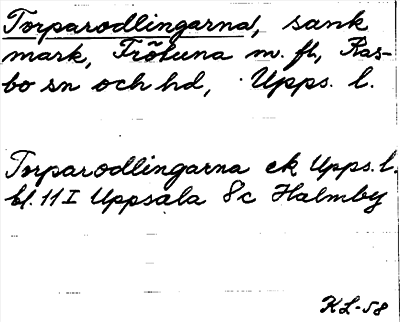 Torparodlingarna, sank
mark, Frötuna m. fl, Ras-
bo sn och hd, Upps. l.
Torparodlingarna ek Upps. l.
bl. 11 I Uppsala 8c Halmby
KL-58